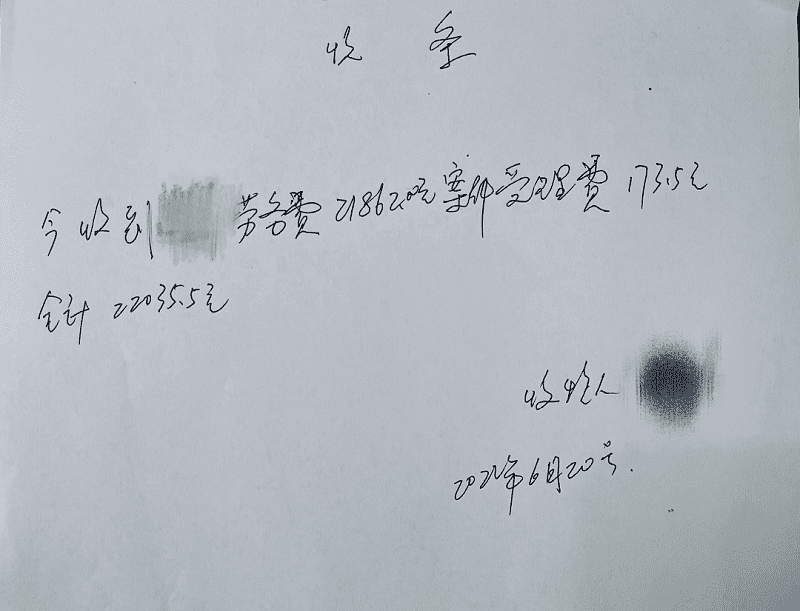 收条
今收到 劳务费21862.0元案件受理费173.5元
合计22035.5元
收款人
2022年6月20号.